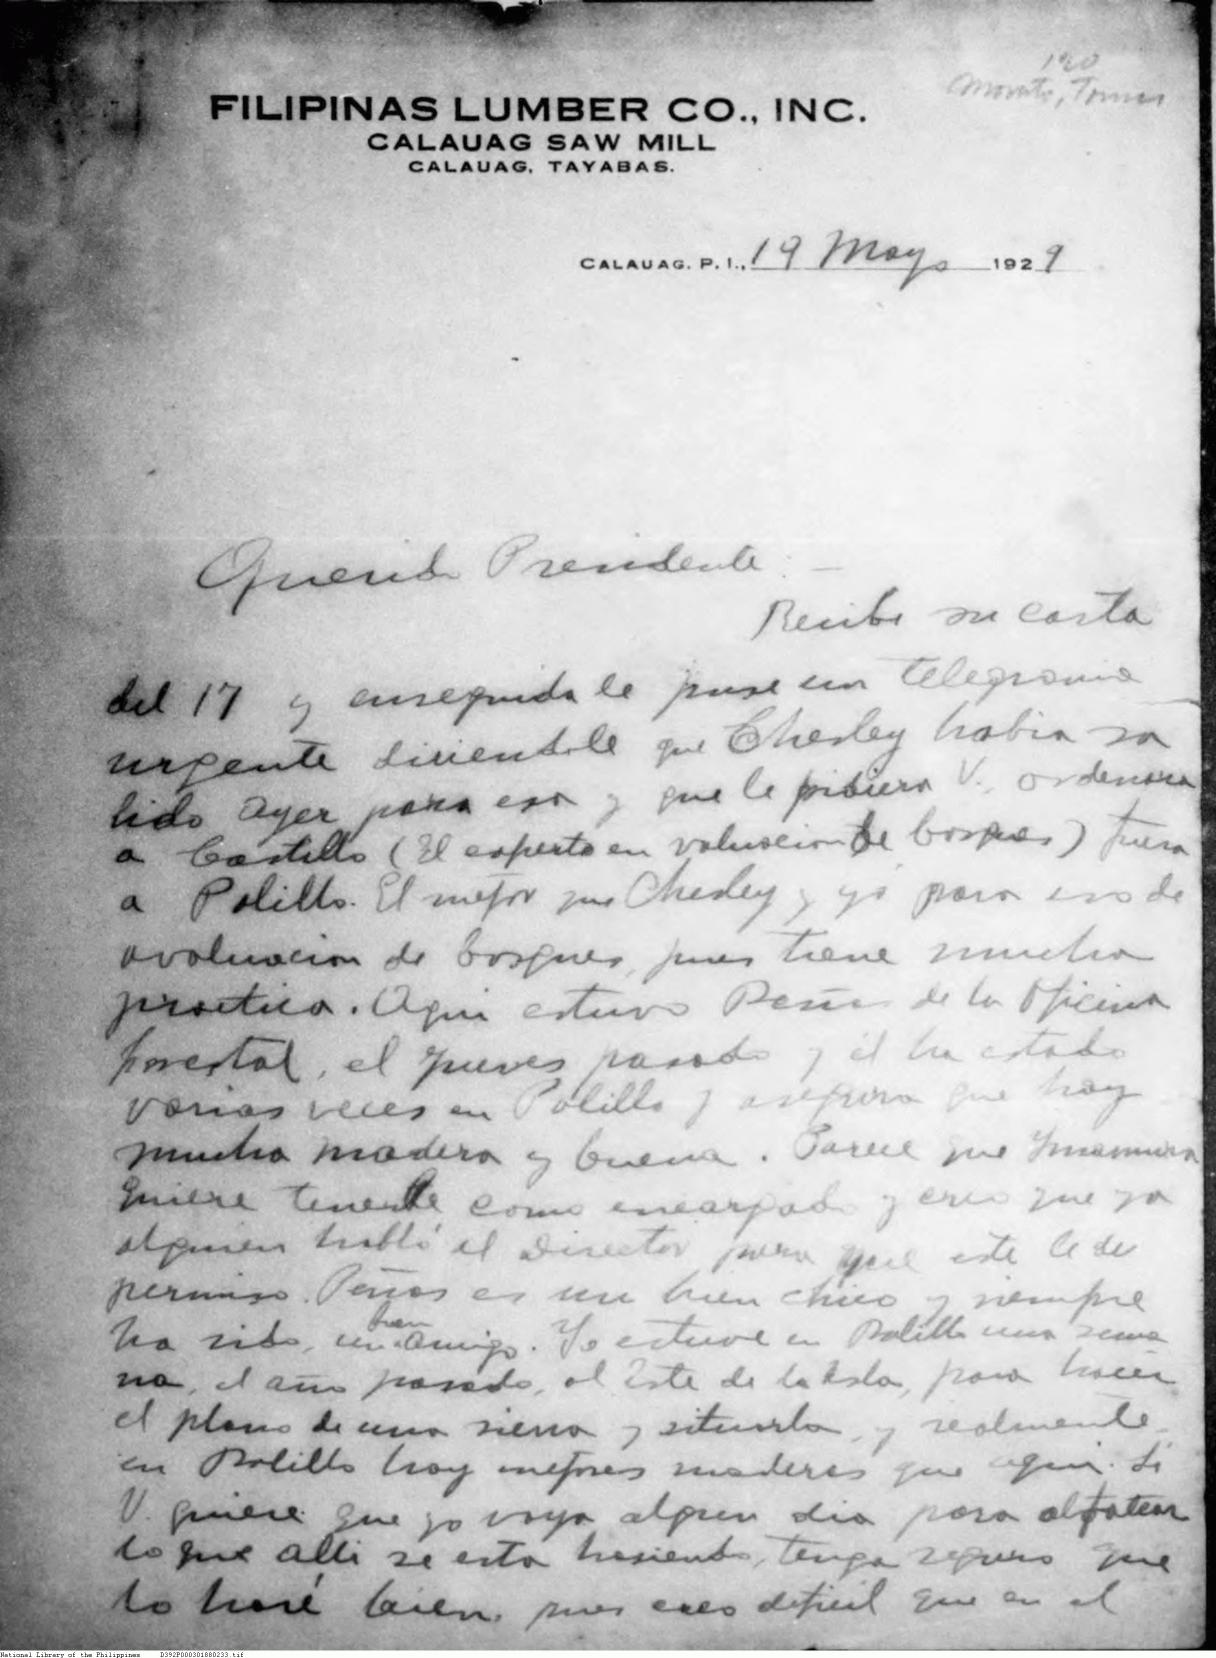 190
Morato, Tomas
FILIPINAS LUMBER CO., INC.
CALAUAG SAW MILL
CALAUAG, TAYABAS.
CALAUAG, P. I., 19 Mayo 1929
Querido Presidente:—
Recibi su carta
del 17 y enseguida le puse un telegrama
urgente diciendole que Chesley habia sa
lido ayer para esa y que le pidiera V. ordenara
a Castillo (El experto en valuacion de bosques) fuera
a Polillo. El mejor que Chesley y yo para eso de
avaluacion de bosques, pues tiene mucha
practica. Aqui estuvo Peñas de la Oficina
forestal, el jueves pasado y él ha estado
varias veces en Polillo y asegura que hay
mucha madera y buena. Parece que
quiere tenerle como encargado y creo que ya
alguien habló el Director para que este le de
permiso. Peñas es un bien chico y siempre
ha sido, un buen amigo. Yo estuve en Polillo una sema
na, el año pasado, al Este de la Isla, para hacer
el plano de una sierra y situarla, y realmente
en Polillo hay mejores maderas que aqui. Si
V. quiere que yo vaya algun dia para
lo que alli se esta haciendo, tenga seguro que
lo haré bien, pues creo dificil que en el
National Library of the Philippines D392P000301880233.tif